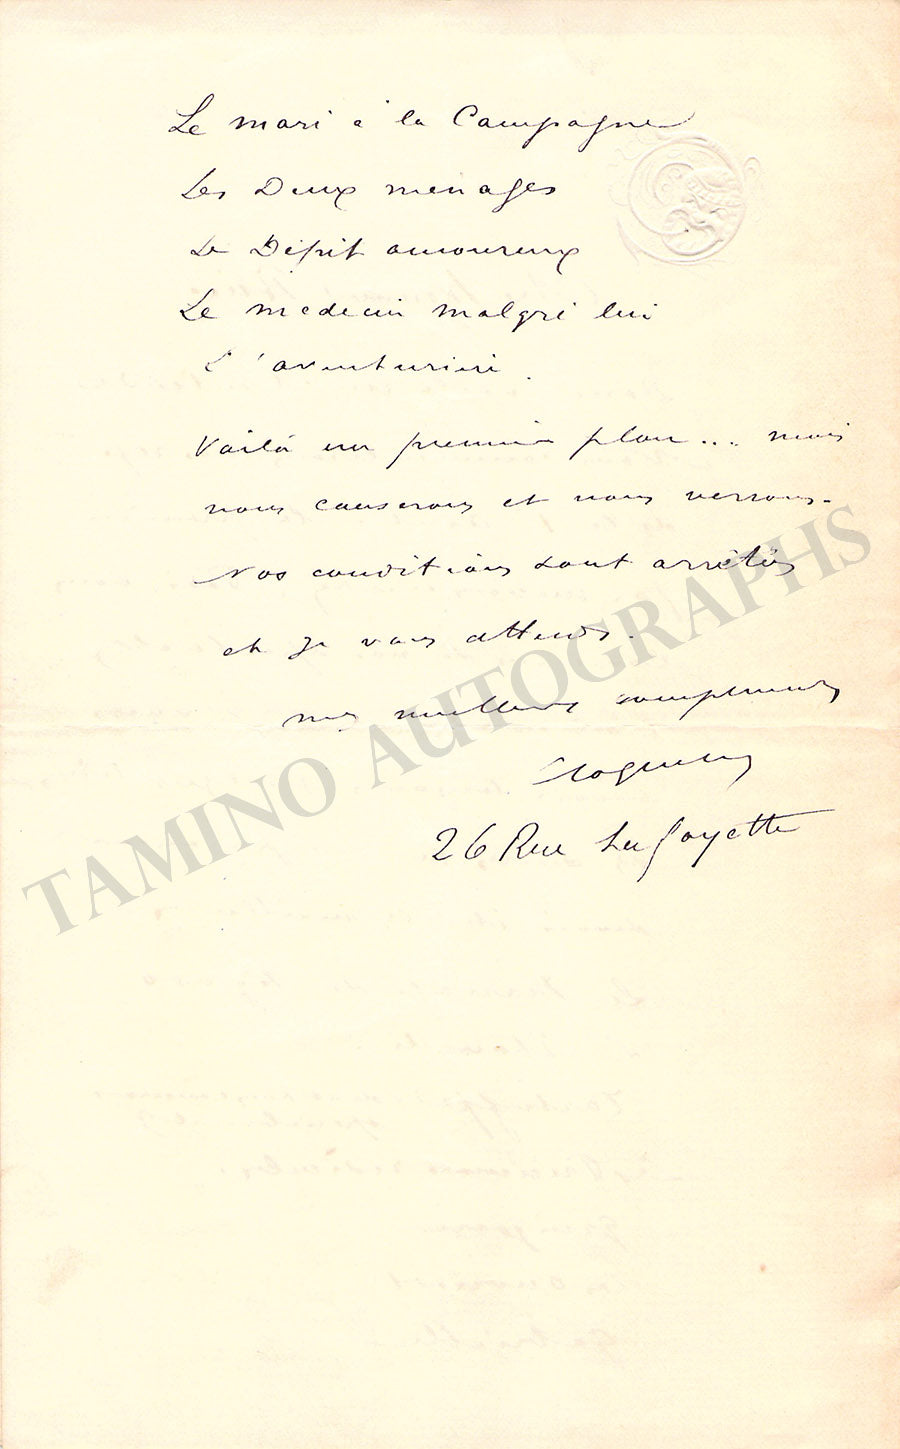 Le mari à la Campagne
Les Deux ménages
Le Dépit amoureux
Le médecin malgré lui
L'aventurière.
Voilà un premier plan... mais
nous causerons et nous verrons.
Nos conditions sont arrêtées
et je vous attends.
mes meilleurs compliments
Coquelin
26 Rue Lafayette
TAMINO AUTOGRAPHS